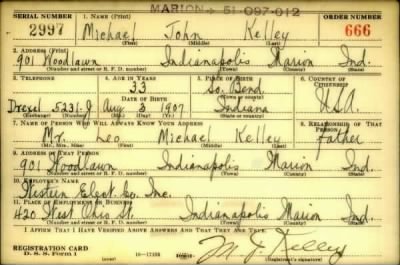 MARION - 51-097-012
SERIAL NUMBER 1. NAME (Print) ORDER NUMBER
2997 Michael John Kelley 666
(First) (Middle) (Last)
2. ADDRESS (Print)
901 Woodlawn Indianapolis Marion Ind.
(Number and street or R. F. D. number) (Town) (County) (State)
3. TELEPHONE 4. AGE IN YEARS 5. PLACE OF BIRTH 6. COUNTRY OF CITIZENSHIP
33 So. Bend
DATE OF BIRTH (Town or county)
Drexel 5231-J Aug 3 1907 Indiana USA
(Exchange) (Number) (Mo.) (Day) (Yr.) (State or country)
7. NAME OF PERSON WHO WILL ALWAYS KNOW YOUR ADDRESS 8. RELATIONSHIP OF THAT PERSON
Mr. Leo Michael Kelley father
(Mr., Mrs., Miss) (First) (Middle) (Last)
9. ADDRESS OF THAT PERSON
901 Woodlawn Indianapolis Marion Ind.
(Number and street or R. F. D. number) (Town) (County) (State)
10. EMPLOYER'S NAME
Western Elect Co. Inc.
11. PLACE OF EMPLOYMENT OR BUSINESS
420 West Ohio St. Indianapolis Marion Ind.
(Number and street or R. F. D. number) (Town) (County) (State)
I AFFIRM THAT I HAVE VERIFIED ABOVE ANSWERS AND THAT THEY ARE TRUE.
REGISTRATION CARD
D. S. S. Form 1 16-17105 M J Kelley
(Registrant's signature)